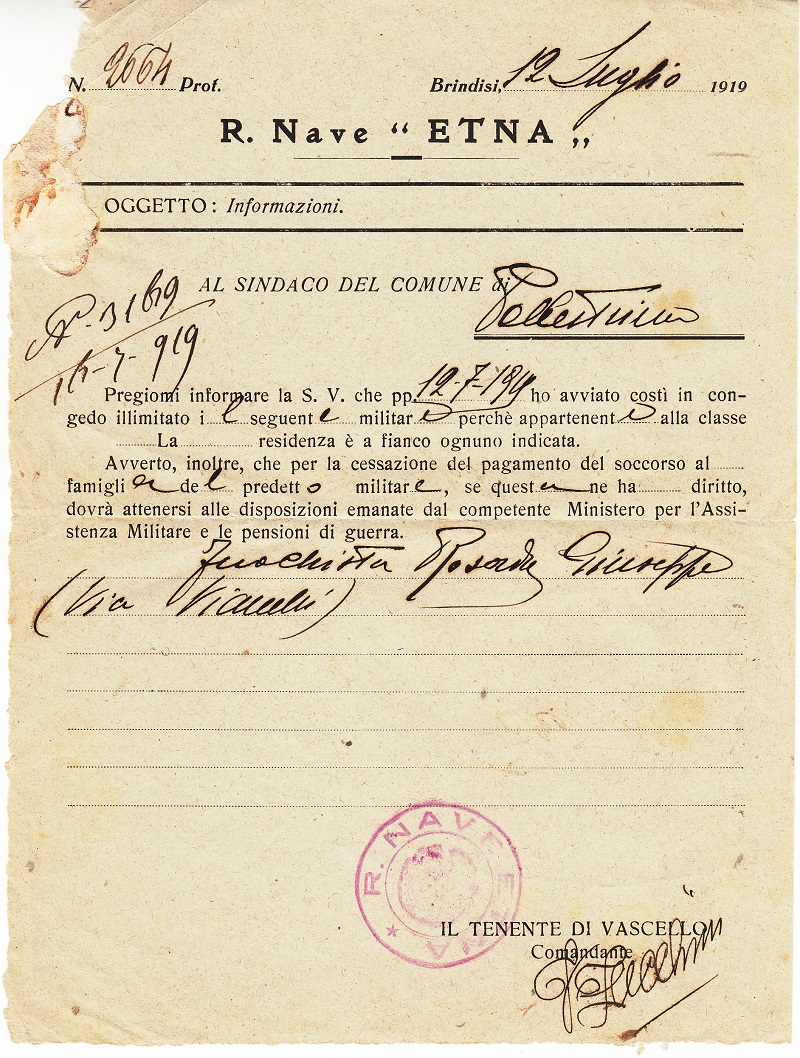 N. 2664 Prot. Brindisi, 12 Luglio 1919
R. Nave “ ETNA „
OGGETTO : Informazioni.
AL SINDACO DEL COMUNE di Pellestrina
N° 3169
15-7-919
Pregiomi informare la S. V. che pp. 12-7-1919 ho avviato costì in con-
gedo illimitato i l seguent e militar e perchè appartenent e alla classe
La residenza è a fianco ognuno indicata.
Avverto, inoltre, che per la cessazione del pagamento del soccorso al
famigli a de l predett o militar e, se quest a ne ha diritto,
dovrà attenersi alle disposizioni emanate dal competente Ministero per l'Assi-
stenza Militare e le pensioni di guerra.
Fuochista Rosada Giuseppe
(Via
R. NAVE ETNA
IL TENENTE DI VASCELLO
Comandante